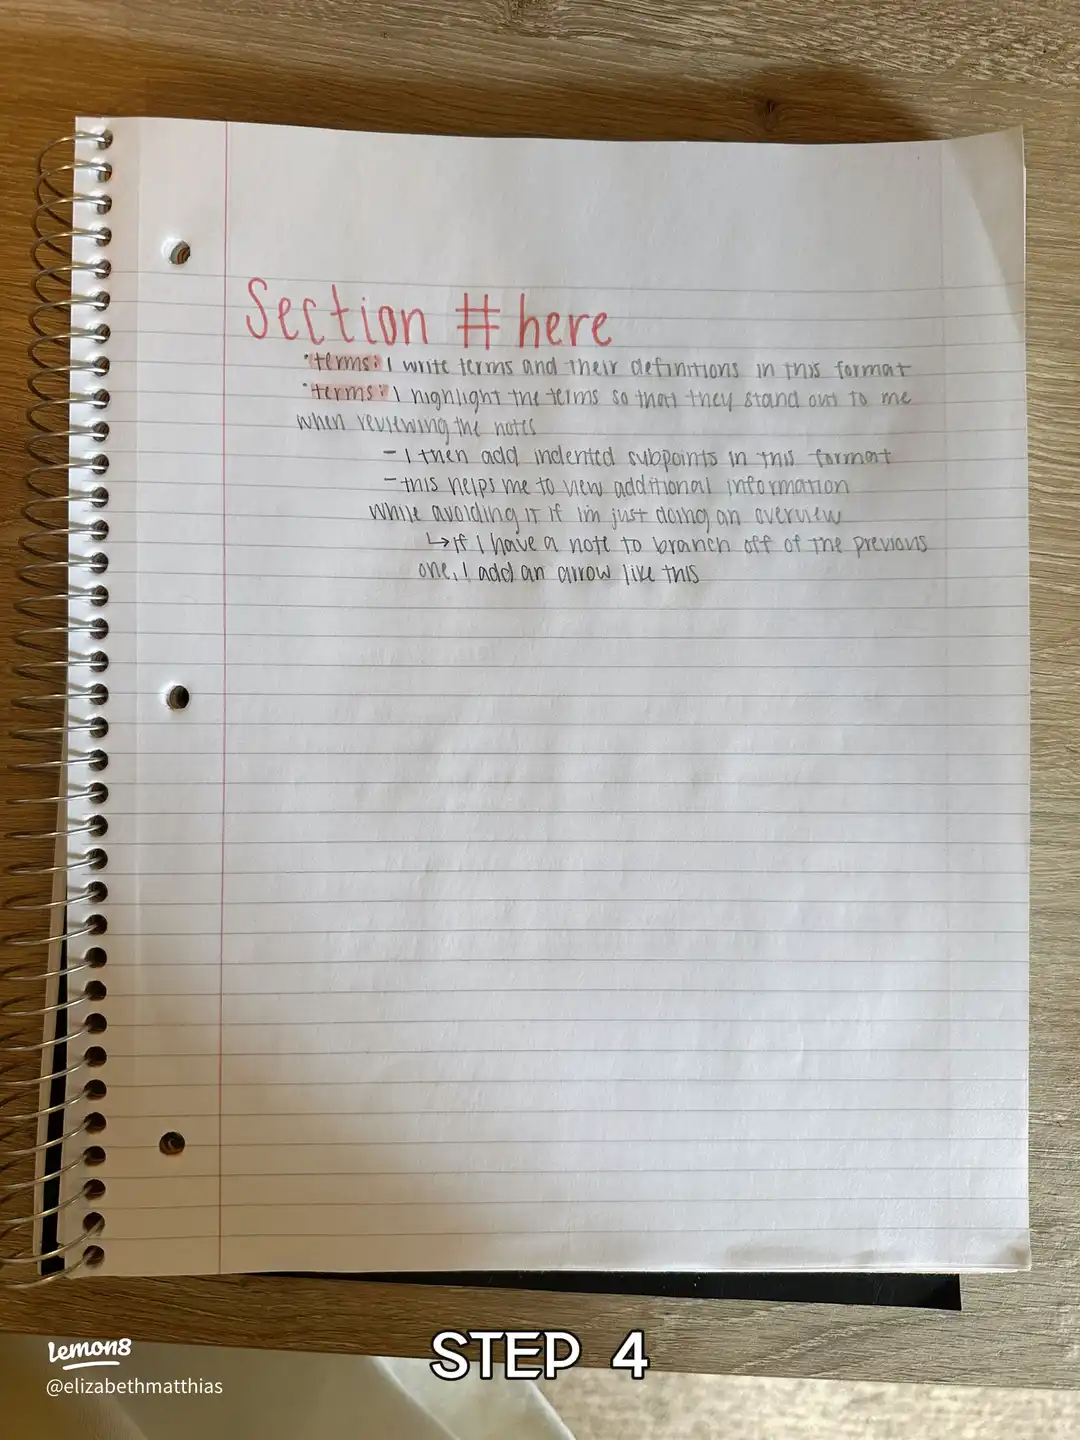 Section # here
•terms: I write terms and their definitions in this format
•terms: I highlight the terms so that they stand out to me
when reviewing the notes
- I then add indented subpoints in this format
- this helps me to view additional information
while avoiding it if im just doing an overview
↳ if I have a note to branch off of the previous
one, I add an arrow like this
STEP 4
lemon8
@elizabethmatthias